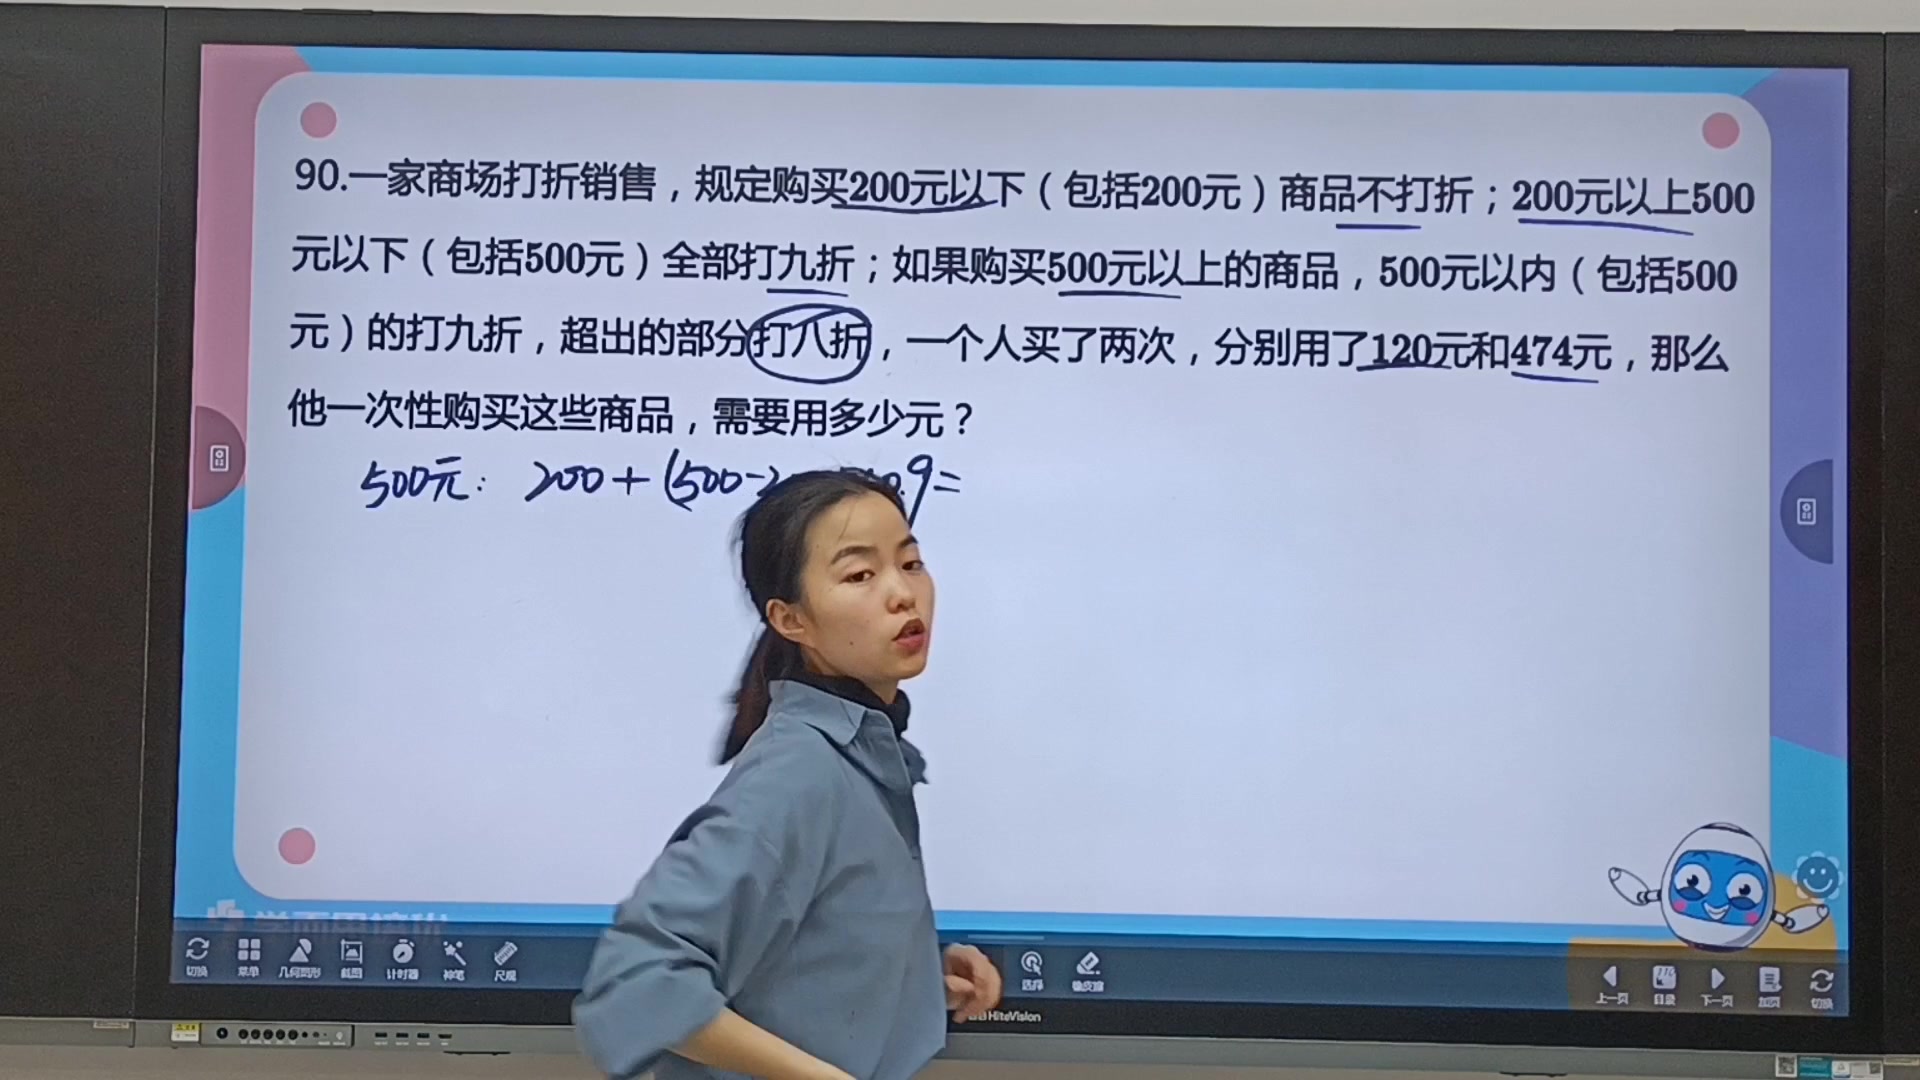 90.一家商场打折销售，规定购买200元以下（包括200元）商品不打折；200元以上500
元以下（包括500元）全部打九折；如果购买500元以上的商品，500元以内（包括500
元）的打九折，超出的部分打八折，一个人买了两次，分别用了120元和474元，那么
他一次性购买这些商品，需要用多少元？
500元： 200+(500-2 0.9=
切换 菜单 几何图形 截图 计时器 神笔 尺规 选择 橡皮擦 上一页 目录 下一页 加页 切换
HiteVision